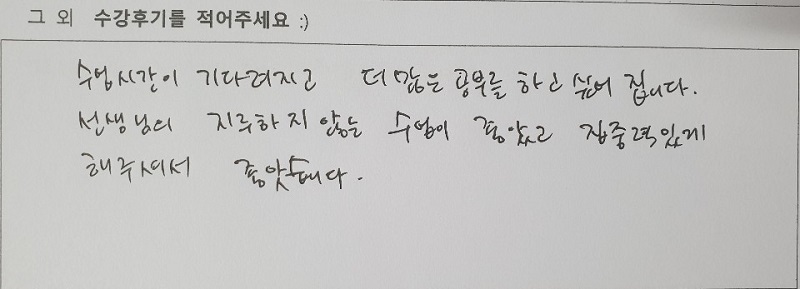 그 외 수강후기를 적어주세요 :)
수업시간이 기다려지고 더 많은 공부를 하고 싶어 집니다.
선생님의 지루하지 않는 수업이 좋았고 집중력있게
해주셔서 좋았습니다.